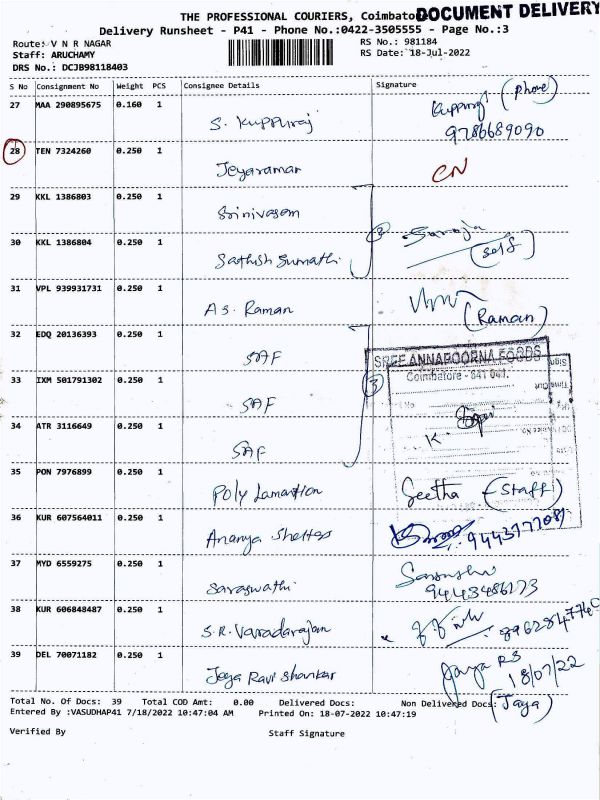 THE PROFESSIONAL COURIERS, Coimbato
DOCUMENT DELIVERY
Delivery Runsheet - P41 - Phone No.:0422-3505555 - Page No.:3
Route: V N R NAGAR
RS No.: 981184
Staff: ARUCHAMY
RS Date: 18-Jul-2022
DRS No.: DCJB98118403
S No Consignment No Weight PCS Consignee Details Signature
27 MAA 290895675 0.160 1 S. Kuppuraj Kuppuraj (Phone)
9786689090
28 TEN 7324260 0.250 1 Jeyaraman CN
29 KKL 1386803 0.250 1 Srinivasan
30 KKL 1386804 0.250 1 Sathish Sumathi 2 Saroja (self)
31 VPL 939931731 0.250 1 A S. Raman (Raman)
32 EDQ 20136393 0.250 1 SAF
SREE ANNAPOORNA FOODS
33 IXM 501791302 0.250 1 SAF 3
Coimbatore - 641 041.
34 ATR 3116649 0.250 1 SAF K.
35 PON 7976899 0.250 1 Poly Lamantion Geetha (Staff)
36 KUR 607564011 0.250 1 Ananya Shelters
37 MYD 6559275 0.250 1 Saraswathi
9443486173
38 KUR 606848487 0.250 1 S.R. Varadarajan
39 DEL 70071182 0.250 1 Jeya Ravi Shankar Jaya RS
18/07/22
(Jaya)
Total No. Of Docs: 39 Total COD Amt: 0.00 Delivered Docs: Non Delivered Docs:
Entered By :VASUDHAP41 7/18/2022 10:47:04 AM Printed On: 18-07-2022 10:47:19
Verified By Staff Signature